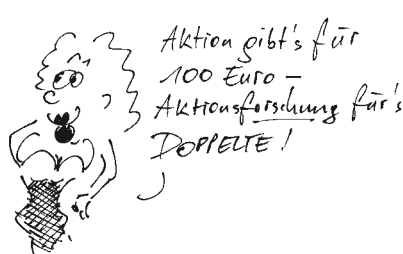 Aktion gibt's für
100 Euro –
Aktionsforschung für's
DOPPELTE!